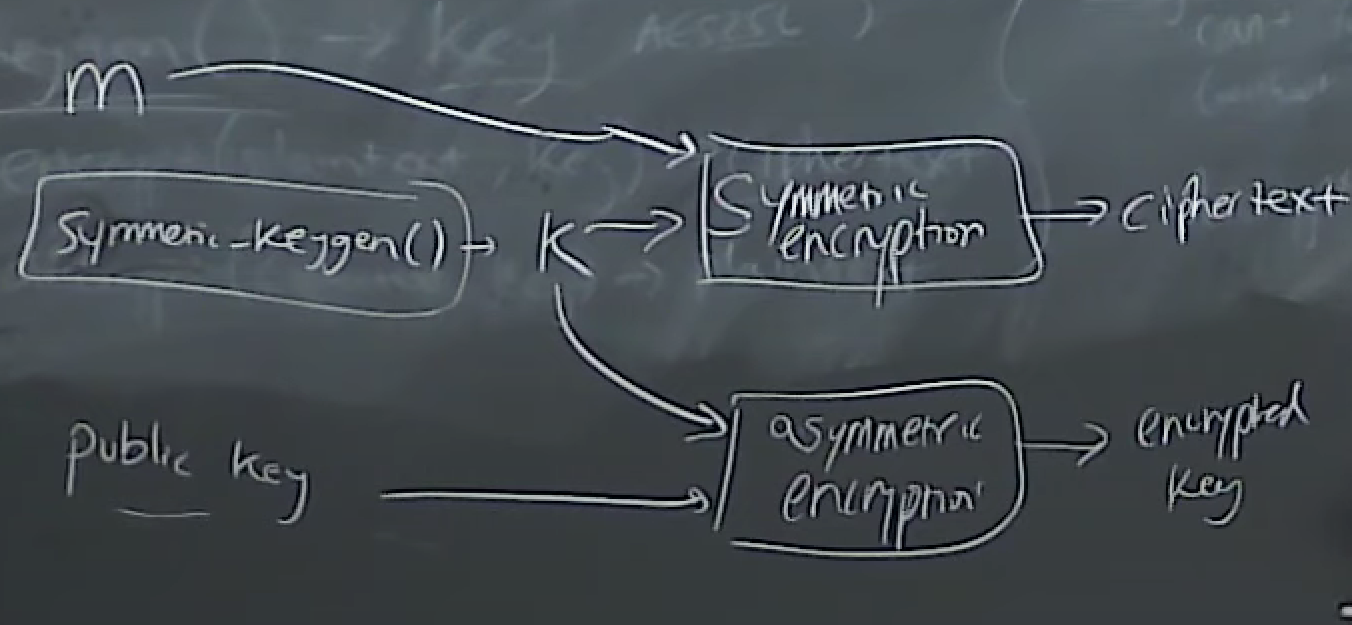 m
Symmeric_keygen()
K
Symmetric
encryption
ciphertext
public key
asymmetric
encryption
encrypted
key
key
can't